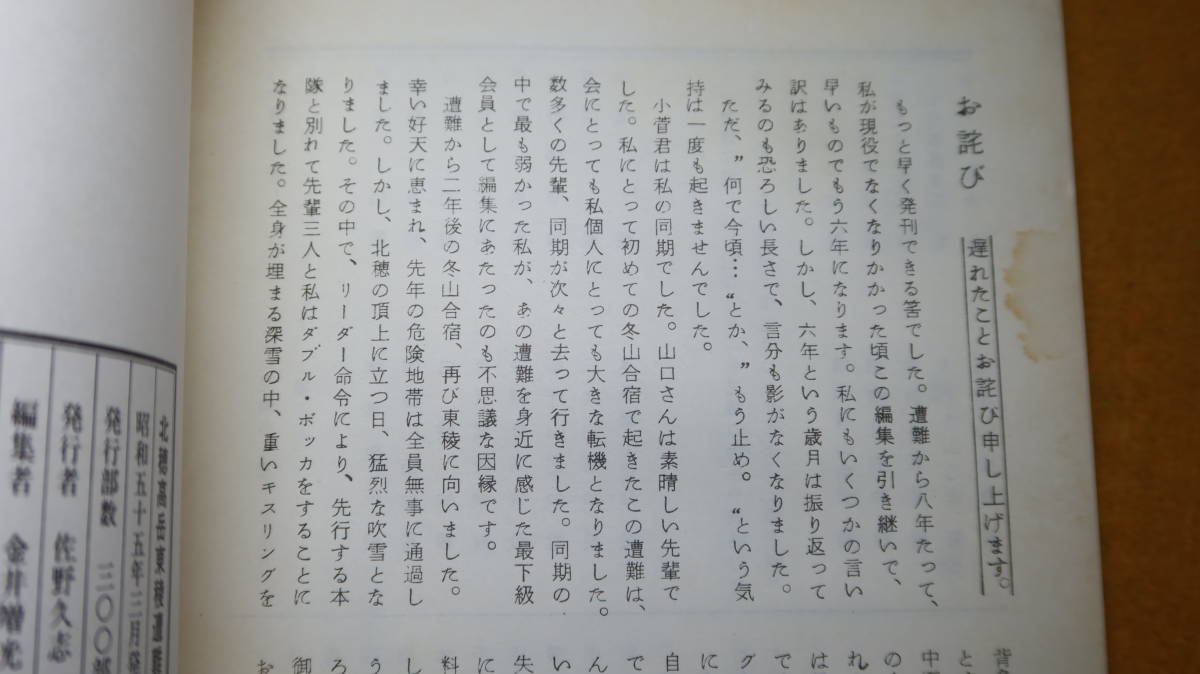 お詫び
遅れたことお詫び申し上げます。
もっと早く発刊できる筈でした。遭難から八年たって、
私が現役でなくなりかかった頃この編集を引き継いで、
早いものでもう六年になります。私にもいくつかの言い
訳はありました。しかし、六年という歳月は振り返って
みるのも恐ろしい長さで、言分も影がなくなりました。
ただ、”何で今頃…“とか、”もう止め。“という気
持は一度も起きませんでした。
小菅君は私の同期でした。山口さんは素晴しい先輩で
した。私にとって初めての冬山合宿で起きたこの遭難は、
会にとっても私個人にとっても大きな転機となりました。
数多くの先輩、同期が次々と去って行きました。同期の
中で最も弱かった私が、あの遭難を身近に感じた最下級
会員として編集にあたったのも不思議な因縁です。
遭難から二年後の冬山合宿、再び東稜に向いました。
幸い好天に恵まれ、先年の危険地帯は全員無事に通過し
ました。しかし、北穂の頂上に立つ日、猛烈な吹雪とな
りました。その中で、リーダー命令により、先行する本
隊と別れて先輩三人と私はダブル・ボッカをすることに
なりました。全身が埋まる深雪の中、重いキスリングを
背
と
中
の
れ
は
で
グ
に
自
で
ん
い
失
に
料
し
う
ろ
御
お
北穂高岳東稜遭難
昭和五十五年三月
発行部数 三〇〇部
発行者 佐野久志
編集者 金井増光